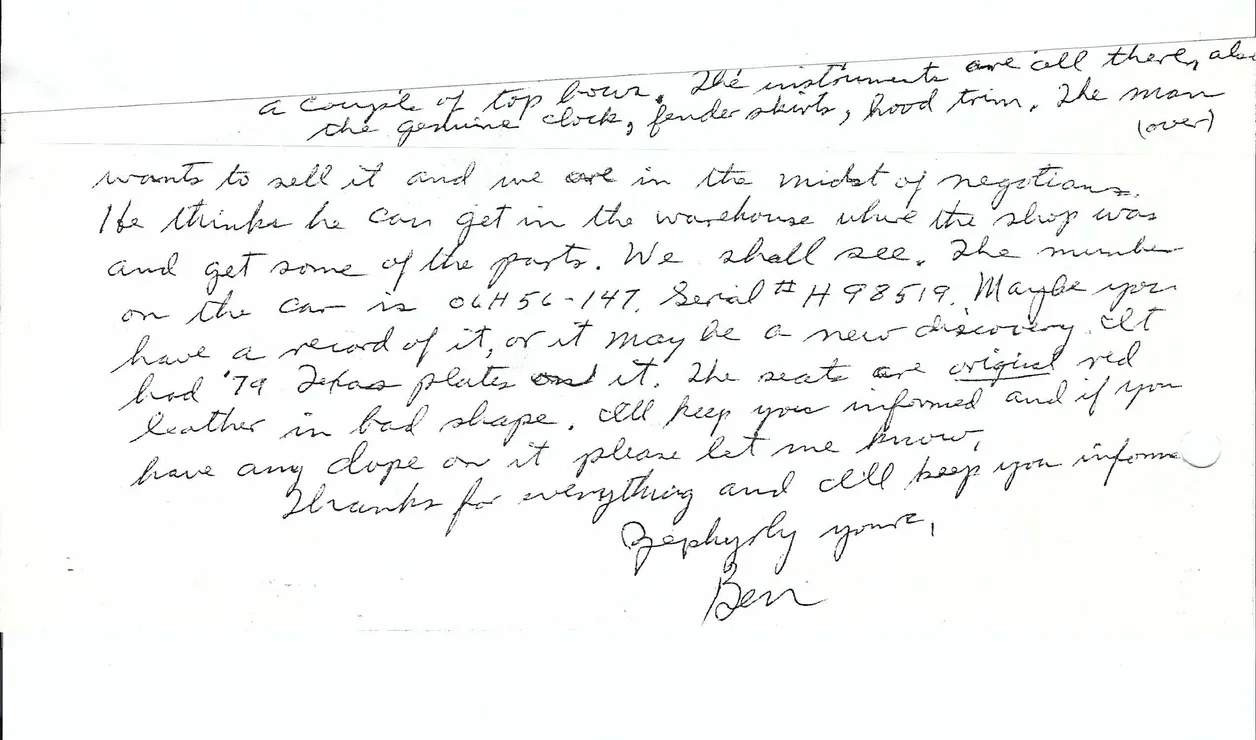 a couple of top bows. The instruments are all there, also
the genuine clock, fender skirts, hood trim. The man
(over)
wants to sell it and we are in the midst of negotians.
He thinks he can get in the warehouse where the shop was
and get some of the parts. We shall see. The number
on the car is 06H56-147. Serial # H 98519. Maybe you
have a record of it, or it may be a new discovery. It
had '79 Texas plates on it. The seats are original red
leather in bad shape. I'll keep you informed and if you
have any dope on it please let me know.
Thanks for everything and I'll keep you informe
Zephyrly yours,
Ben